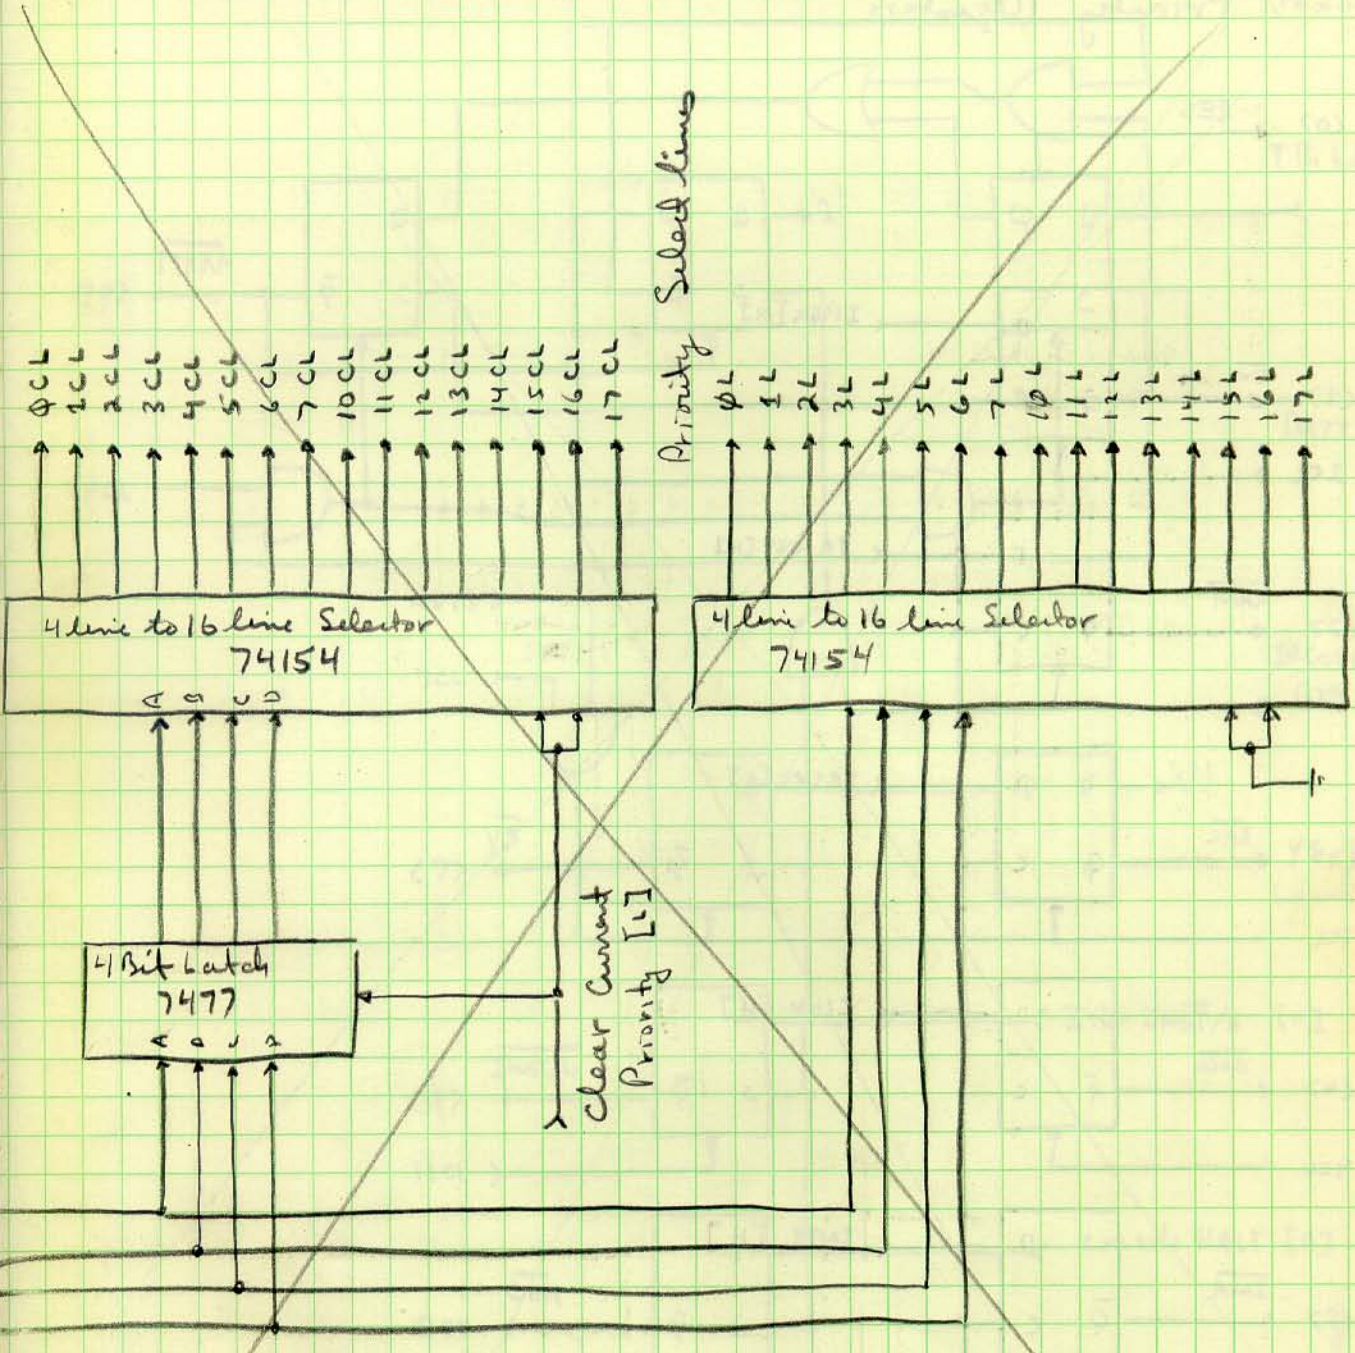 Priority Select lines
φCL
1CL
2CL
3CL
4CL
5CL
6CL
7CL
10CL
11CL
12CL
13CL
14CL
15CL
16CL
17CL
φL
1L
2L
3L
4L
5L
6L
7L
1φL
11L
12L
13L
14L
15L
16L
17L
4 line to 16 line Selector
74154
A B C D
4 line to 16 line Selector
74154
4 Bit Latch
7477
A B C D
Clear Current
Priority [L]